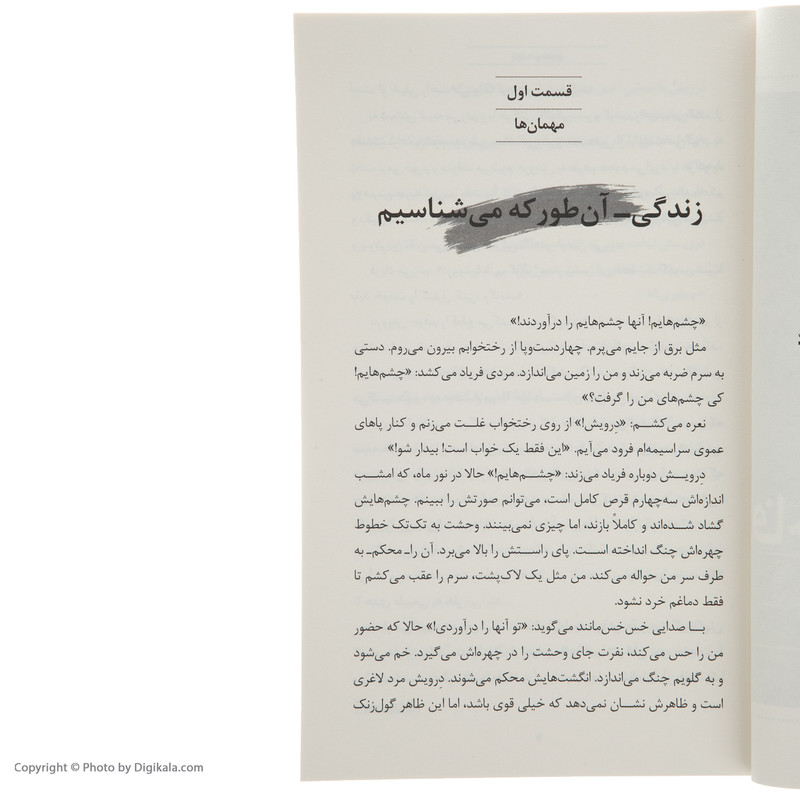 قسمت اول
مهمان‌ها
زندگی_ آن‌طور که می‌شناسیم
«چشم‌هایم! آنها چشم‌هایم را درآوردند!»
مثل برق از جایم می‌پرم. چهاردست‌وپا از رختخوابم بیرون می‌روم. دستی
به سرم ضربه می‌زند و من را زمین می‌اندازد. مردی فریاد می‌کشد: «چشم‌هایم!
کی چشم‌های من را گرفت؟»
نعره می‌کشم: «دِرویش!» از روی رختخواب غلت می‌زنم و کنار پاهای
عموی سراسیمه‌ام فرود می‌آیم. «این فقط یک خواب است! بیدار شو!»
دِرویش دوباره فریاد می‌زند: «چشم‌هایم!» حالا در نور ماه، که امشب
اندازه‌اش سه‌چهارم قرص کامل است، می‌توانم صورتش را ببینم. چشم‌هایش
گشاد شده‌اند و کاملاً بازند، اما چیزی نمی‌بینند. وحشت به تک‌تک خطوط
چهره‌اش چنگ انداخته است. پای راستش را بالا می‌برد. آن را_ محکم_ به
طرف سر من حواله می‌کند. من مثل یک لاک‌پشت، سرم را عقب می‌کشم تا
فقط دماغم خرد نشود.
با صدایی خس‌خس‌مانند می‌گوید: «تو آنها را درآوردی!» حالا که حضور
من را حس می‌کند، نفرت جای وحشت را در چهره‌اش می‌گیرد. خم می‌شود
و به گلویم چنگ می‌اندازد. انگشت‌هایش محکم می‌شوند. دِرویش مرد لاغری
است و ظاهرش نشان نمی‌دهد که خیلی قوی باشد، اما این ظاهر گول‌زنک
Copyright © Photo by Digikala.com